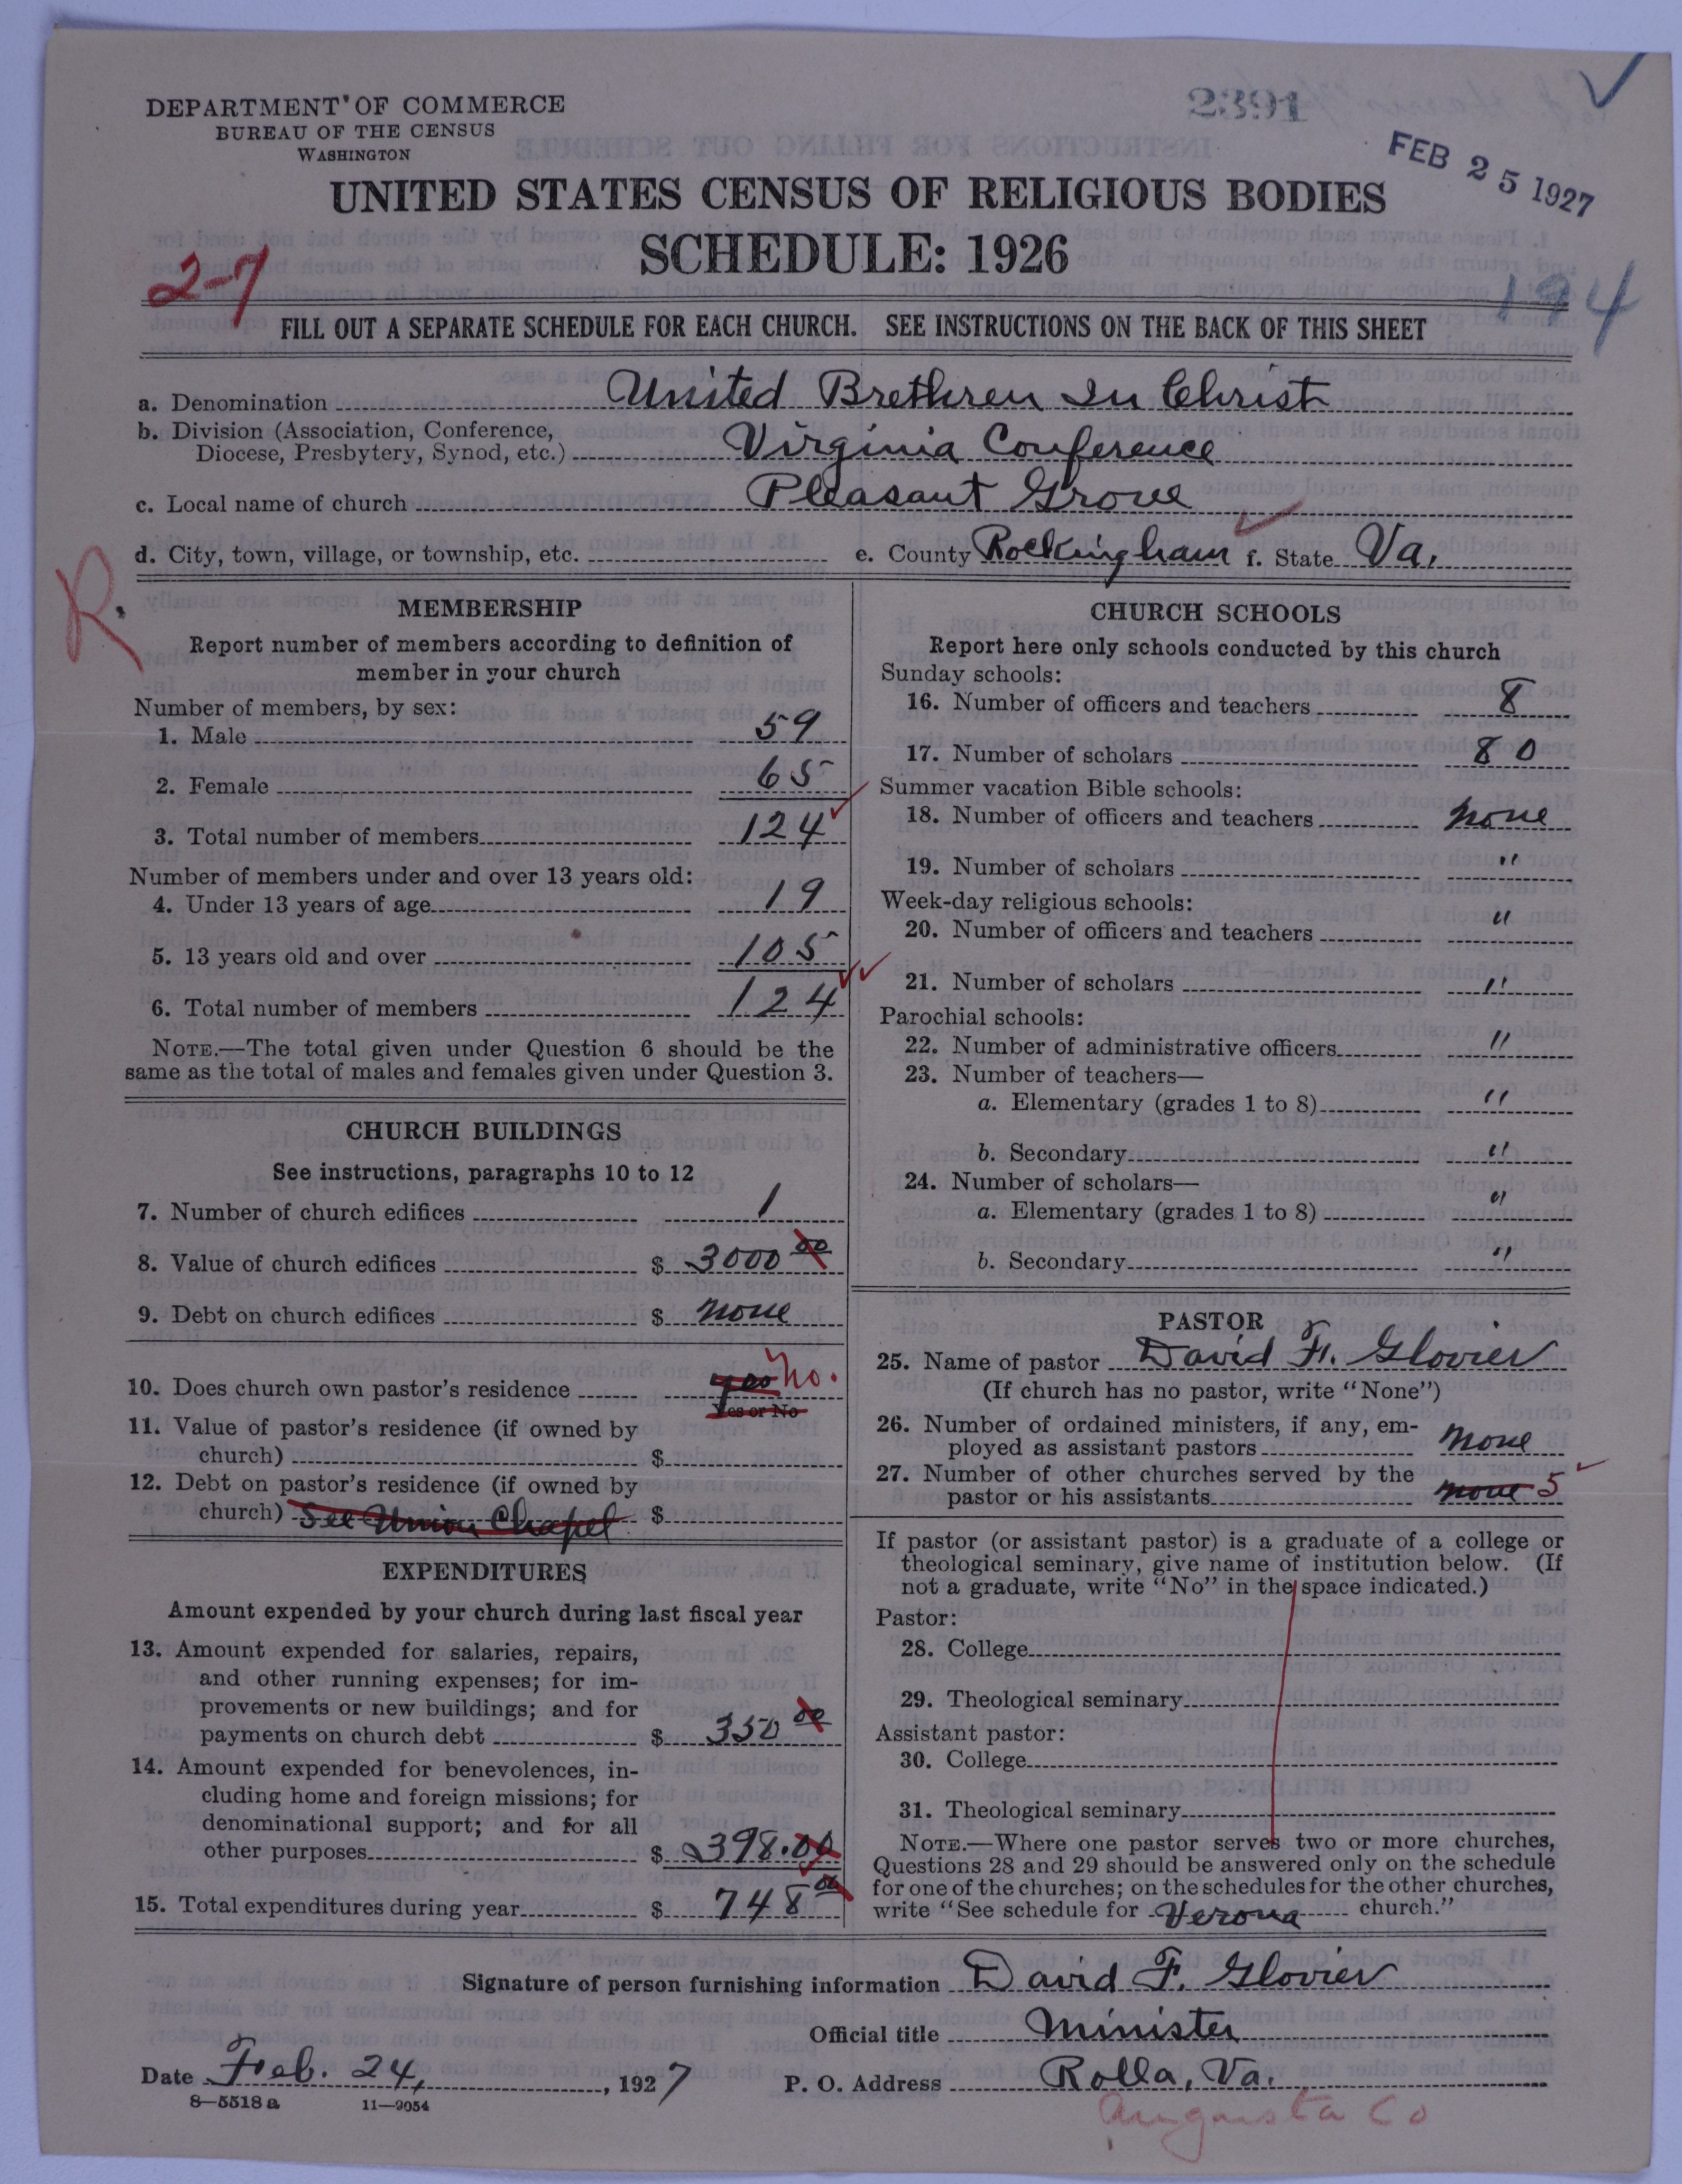 2391
DEPARTMENT OF COMMERCE
BUREAU OF THE CENSUS
WASHINGTON
FEB 25 1927
UNITED STATES CENSUS OF RELIGIOUS BODIES
SCHEDULE: 1926
2-7
194
FILL OUT A SEPARATE SCHEDULE FOR EACH CHURCH. SEE INSTRUCTIONS ON THE BACK OF THIS SHEET
a. Denomination United Brethren In Christ
b. Division (Association, Conference,
Diocese, Presbytery, Synod, etc.) Virginia Conference
c. Local name of church Pleasant Grove
d. City, town, village, or township, etc. e. County Rockingham f. State Va.
R.
MEMBERSHIP
Report number of members according to definition of
member in your church
Number of members, by sex:
1. Male 59
2. Female 65
3. Total number of members 124
Number of members under and over 13 years old:
4. Under 13 years of age 19
5. 13 years old and over 105
6. Total number of members 124
NOTE.—The total given under Question 6 should be the
same as the total of males and females given under Question 3.
CHURCH BUILDINGS
See instructions, paragraphs 10 to 12
7. Number of church edifices 1
8. Value of church edifices $ 3000 00
9. Debt on church edifices $ none
10. Does church own pastor's residence yes No.
Yes or No
11. Value of pastor's residence (if owned by
church) $
12. Debt on pastor's residence (if owned by
church) See Union Chapel $
EXPENDITURES
Amount expended by your church during last fiscal year
13. Amount expended for salaries, repairs,
and other running expenses; for im-
provements or new buildings; and for
payments on church debt $ 350 00
14. Amount expended for benevolences, in-
cluding home and foreign missions; for
denominational support; and for all
other purposes $ 398.00
15. Total expenditures during year $ 748 00
CHURCH SCHOOLS
Report here only schools conducted by this church
Sunday schools:
16. Number of officers and teachers 8
17. Number of scholars 80
Summer vacation Bible schools:
18. Number of officers and teachers none
19. Number of scholars "
Week-day religious schools:
20. Number of officers and teachers "
21. Number of scholars "
Parochial schools:
22. Number of administrative officers "
23. Number of teachers—
a. Elementary (grades 1 to 8) "
b. Secondary "
24. Number of scholars—
a. Elementary (grades 1 to 8) "
b. Secondary "
PASTOR
25. Name of pastor David F. Glovier
(If church has no pastor, write "None")
26. Number of ordained ministers, if any, em-
ployed as assistant pastors none
27. Number of other churches served by the
pastor or his assistants none 5
If pastor (or assistant pastor) is a graduate of a college or
theological seminary, give name of institution below. (If
not a graduate, write "No" in the space indicated.)
Pastor:
28. College
29. Theological seminary
Assistant pastor:
30. College
31. Theological seminary
NOTE.—Where one pastor serves two or more churches,
Questions 28 and 29 should be answered only on the schedule
for one of the churches; on the schedules for the other churches,
write "See schedule for Verona church."
Signature of person furnishing information David F. Glovier
Official title Minister
Date Feb. 24, , 1927 P. O. Address Rolla, Va.
8—5518 a 11—9054
Augusta Co